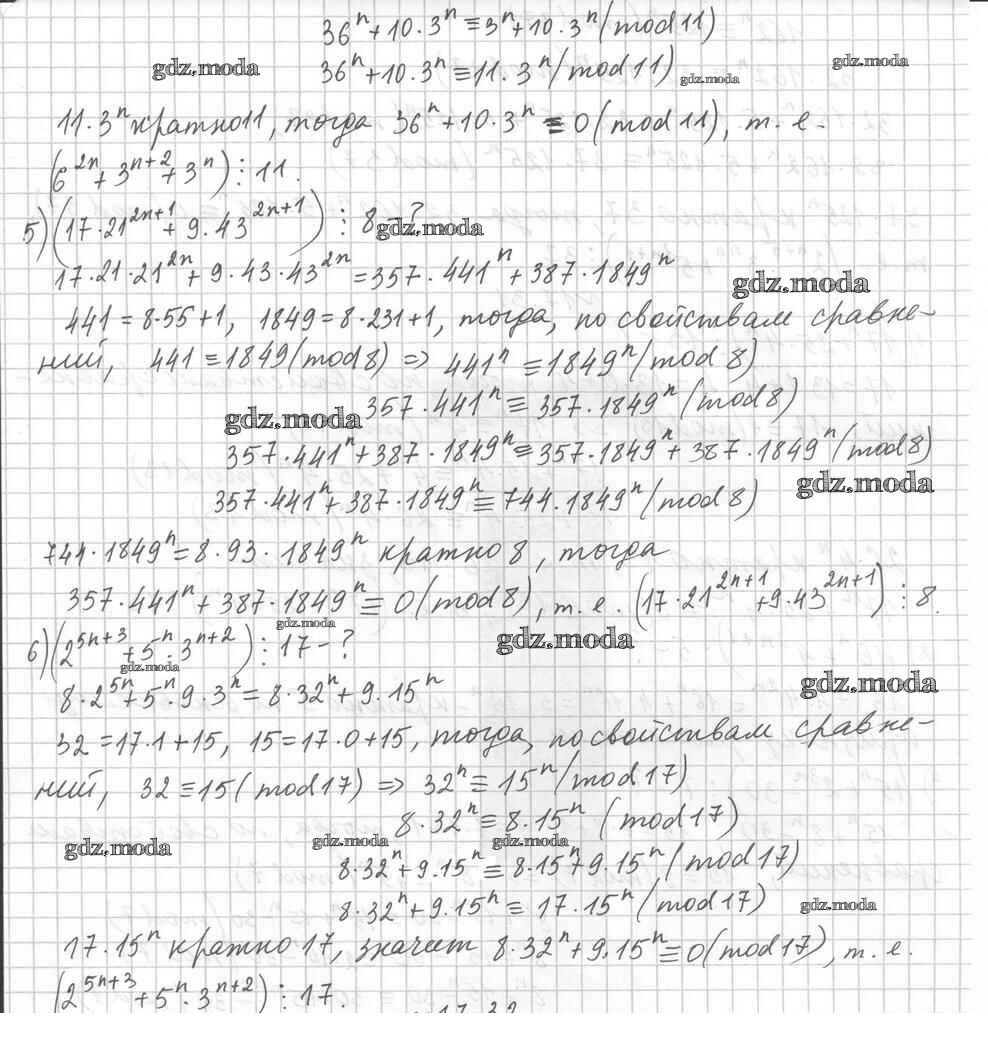 36ⁿ + 10·3ⁿ ≡ 3ⁿ + 10·3ⁿ (mod 11)
gdz.moda 36ⁿ + 10·3ⁿ ≡ 11·3ⁿ (mod 11) gdz.moda gdz.moda
11·3ⁿ кратно 11, тогда 36ⁿ + 10·3ⁿ ≡ 0 (mod 11), т. е.
(6²ⁿ + 3ⁿ⁺² + 3ⁿ) ⋮ 11.
5) (17·21²ⁿ⁺¹ + 9·43²ⁿ⁺¹) ⋮ 8 – ? gdz.moda
17·21·21²ⁿ + 9·43·43²ⁿ = 357·441ⁿ + 387·1849ⁿ
gdz.moda
441 = 8·55+1, 1849 = 8·231+1, тогда, по свойствам сравне-
ний, 441 ≡ 1849 (mod 8) => 441ⁿ ≡ 1849ⁿ (mod 8)
gdz.moda 357·441ⁿ ≡ 357·1849ⁿ (mod 8)
357·441ⁿ + 387·1849ⁿ ≡ 357·1849ⁿ + 387·1849ⁿ (mod 8)
357·441ⁿ + 387·1849ⁿ ≡ 744·1849ⁿ (mod 8) gdz.moda
744·1849ⁿ = 8·93·1849ⁿ кратно 8, тогда
357·441ⁿ + 387·1849ⁿ ≡ 0 (mod 8), т. е. (17·21²ⁿ⁺¹ + 9·43²ⁿ⁺¹) ⋮ 8.
gdz.moda gdz.moda
6) (2⁵ⁿ⁺³ + 5ⁿ·3ⁿ⁺²) ⋮ 17 – ?
gdz.moda gdz.moda
8·2⁵ⁿ + 5ⁿ·9·3ⁿ = 8·32ⁿ + 9·15ⁿ
32 = 17·1+15, 15 = 17·0+15, тогда, по свойствам сравне-
ний, 32 ≡ 15 (mod 17) => 32ⁿ ≡ 15ⁿ (mod 17)
8·32ⁿ ≡ 8·15ⁿ (mod 17)
gdz.moda gdz.moda gdz.moda
8·32ⁿ + 9·15ⁿ ≡ 8·15ⁿ + 9·15ⁿ (mod 17)
8·32ⁿ + 9·15ⁿ ≡ 17·15ⁿ (mod 17) gdz.moda
17·15ⁿ кратно 17, значит 8·32ⁿ + 9·15ⁿ ≡ 0 (mod 17), т. е.
(2⁵ⁿ⁺³ + 5ⁿ·3ⁿ⁺²) ⋮ 17.